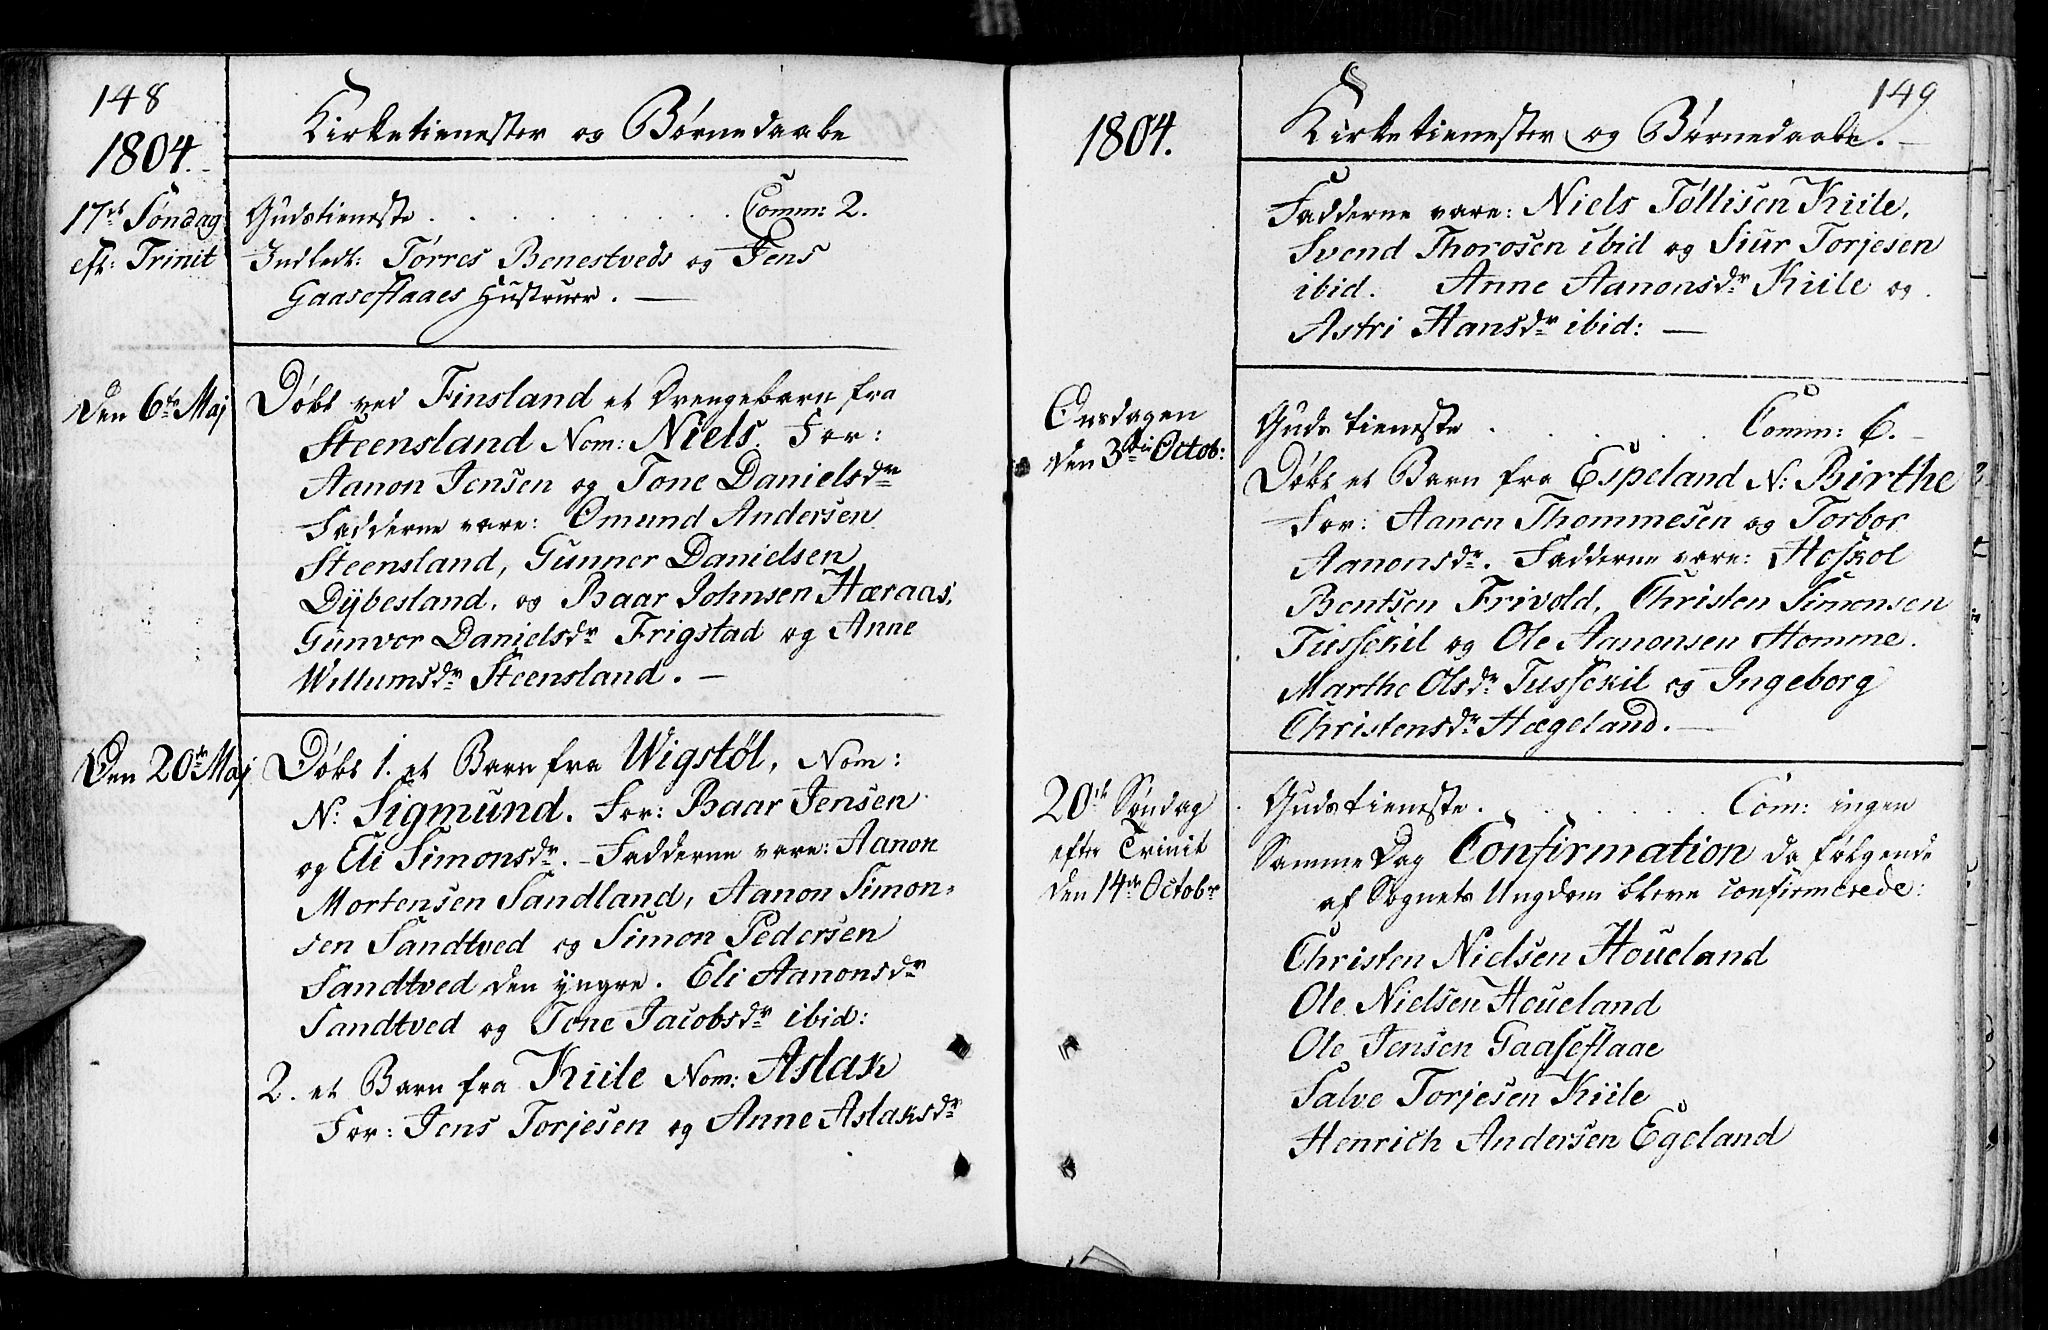 148
1804.
Kirketienester og Børnedaabe
17de Søndag
eft: Trinit
Gudstieneste . . . . . . . . Comm: 2.
Indledt: Törres Benestveds og Jens
Gaaseflaaes Hustruer. —
Den 6te Maj
Döbt ved Finsland et Drengebarn fra
Steensland Nom: Niels. For:
Aanon Jensen og Tone Danielsdr
Fadderne vare: Omund Andersen
Steensland, Gunner Danielsen
Dÿbesland, og Baar Johnsen Hæraas,
Gunvor Danielsdr Frigstad og Anne
Willumsdr Steensland. —
Den 20de Maj
Döbt 1. et Barn fra Wigstøl, Nom:
N: Sigmund. For: Baar Jensen
og Eli Simonsdr. - Fadderne vare: Aanon
Mortensen Sandland, Aanon Simon-
sen Sandtved og Simon Pedersen
Sandtved den yngre. Eli Aanonsdr
Sandtved og Tone Jacobsdr ibid:
2. et Barn fra Kiile Nom: Aslak
For: Jens Torjesen og Anne Aslaksdr
149
1804.
Kirketienester og Børnedaabe. —
Fadderne vare: Niels Tøllisen Kiile,
Svend Thorosen ibid og Siur Torjesen
ibid. Anne Aanonsdr Kiile og
Astri Hansdr ibid: —
Onsdagen
den 3die Octob:
Gudstieneste . . . . . . Comm: 6. -
Döbt et Barn fra Espeland N: Birthe
For: Aanon Thommesen og Torbor
Aanonsdr. Fadderne vare: Hoskol
Bentsen Frivold, Christen Simonsen
Tusskil og Ole Aanonsen Homme.
Marthe Olsdr Tusskil og Ingeborg
Christensdr Hægeland. —
20de Søndag
efter Trinit
den 14de Octobr
Gudstieneste . . . . . . Com: ingen
Samme Dag Confirmation da følgende
af Sognets Ungdom bleve confirmerede:
Christen Nielsen Houeland
Ole Nielsen Houeland
Ole Jensen Gaaseflaae
Salve Torjesen Kiile
Henrich Andersen Egeland